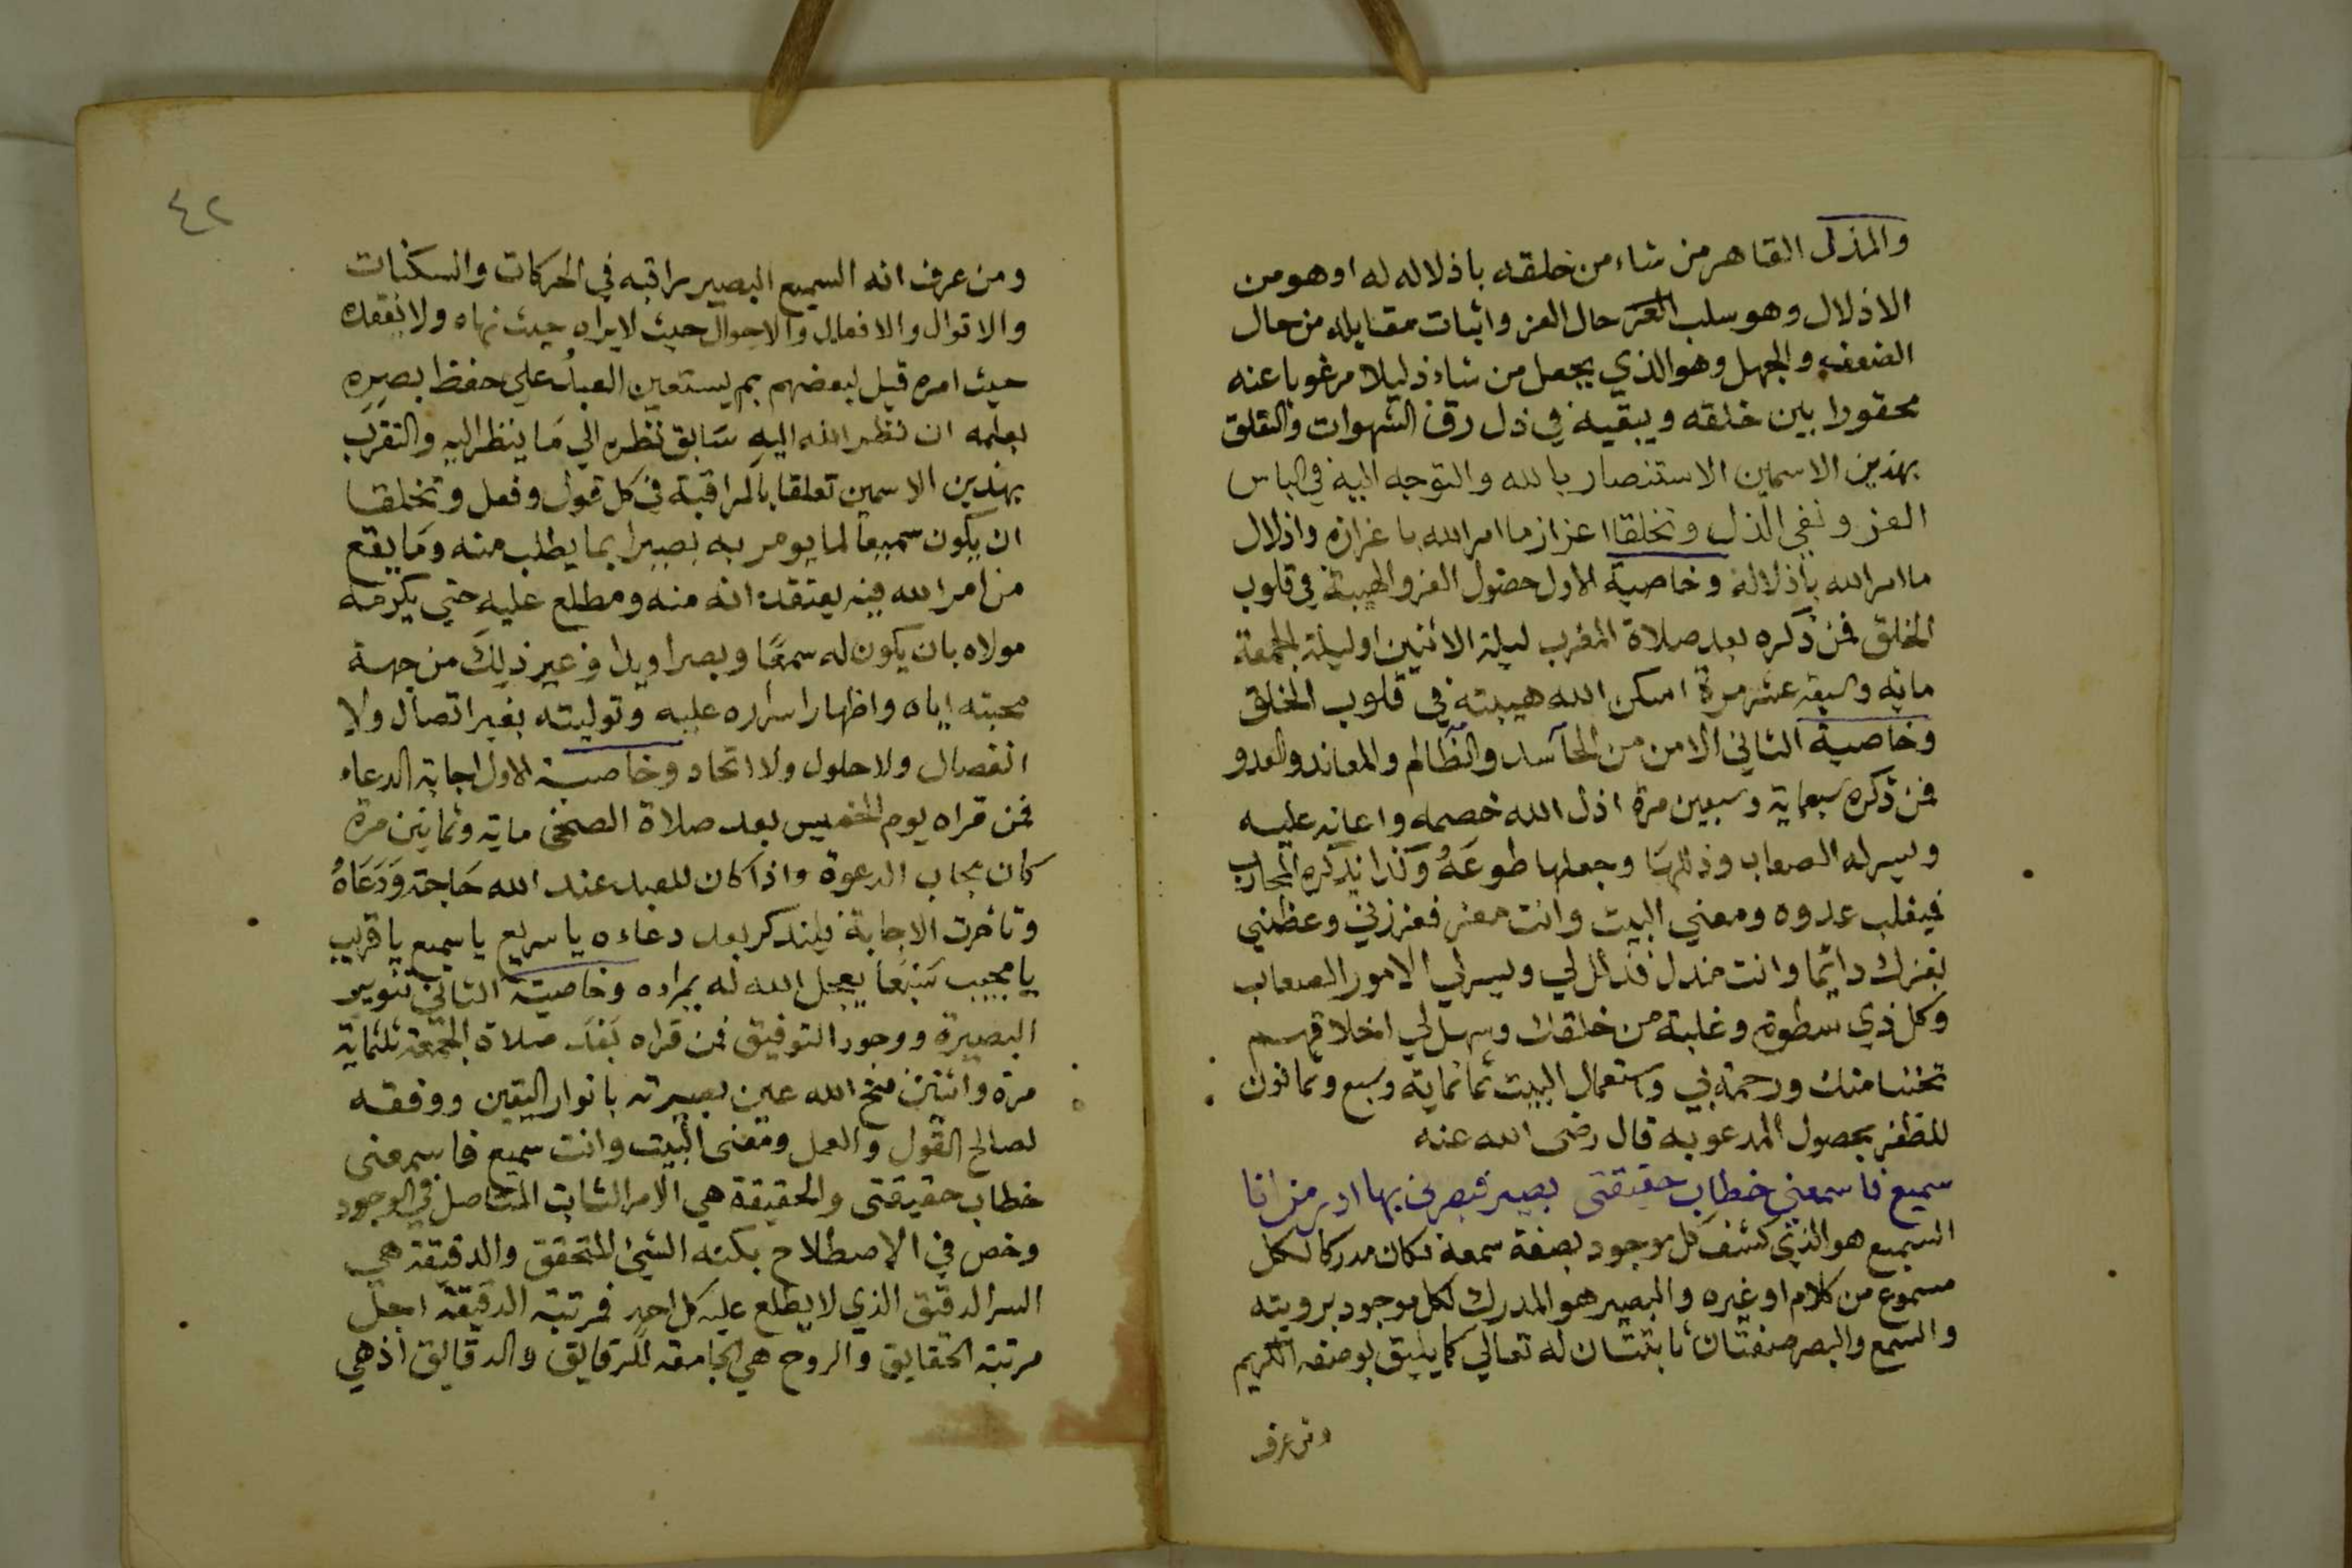 والمذل القاهر من شاء من خلقه باذلاله له او هو من
الاذلال وهو سلب العز حال العز واثبات مقابله من حال
الضعف والجهل وهو الذي يجعل من شاء ذليلا مرغوبا عنه
محقورا بين خلقه ويبقيه في ذل رق الشهوات والتعلق
بهذين الاسمين الاستنصار بالله والتوجه اليه في الباس
العز ونفي الذل وتخلقا اعزاز ما امر الله باعزازه واذلال
ما امر الله باذلاله وخاصية الاول حصول العز والهيبة في قلوب
الخلق فمن ذكره بعد صلاة المغرب ليلة الاثنين او ليلة الجمعة
مائة وسبعة عشر مرة اسكن الله هيبته في قلوب الخلق
وخاصية الثاني الامن من الحآسد والظّالم والمعاند والعدو
فمن ذكره سبعماية وسبعين مرة اذل الله خصمه واعانه عليه
ويسر له الصعاب وذللها وجعلها طوعَهُ وكذا يذكره المحارب
فيغلب عدوه ومعني البيت وانت معز فعززني وعظمني
بعزك دائما وانت مذل فذلل لي ويسر لي الامور الصعاب
وكل ذي سطوة وغلبة من خلقك وسهل لي اخلاقهم
تحننا منك ورحمة بي واستعمال البيت ثمانماية وسبع وثمانون
للظفر بحصول المدعو به قال رضى الله عنه
سميع فاسمعني خطاب حقيقتى بصير فبصرنى بها ادر من انا
السميع هو الذي كشف كل موجود بصفة سمعه فكان مدركا لكل
مسموع من كلام او غيره والبصير هو المدرك لكل موجود برويته
والسمع والبصر صفتان ثابتتان له تعالي كما يليق بوصفه الكريم
ومن عرف
٤٢
ومن عرف انه السميع البصير راقبه في الحركات والسكنات
والاقوال والافعال والاحوال حيث لا يراه حيث نهاه ولا يفقده
حيث امره قيل لبعضهم بم يستعين العبدُ علي حفظ بصره
بعلمه ان نظر الله اليه سَابق نظره الي مَا ينظر اليه والتقرب
بهذين الاسمين تعلقا بالمراقبة في كل قول وفعل وتخلقا
ان يكون سميعا لما يومر به بصيرا بما يطلب منه وما يقع
من امر الله فيه يعتقد انه منه ومطلع عليه حتي يكرمه
مولاه بان يكون له سمعًا وبصرا ويدا وغير ذلِكَ من جهة
محبته اياه واظهار اسراره عليه وتوليته بغير اتصال ولا
انفصال ولا حلول ولا اتحاد وخاصية الاول اجابة الدعاء
فمن قراه يوم الخميس بعد صلاة الضحى ماية وثمانين مرة
كان مجاب الدعوة واذا كان للعبد عند الله حَاجة وَدَعَاهُ
وتأخرت الاجابة فليذكر بعد دعاءه يا سريع يا سميع يا قريب
يا مجيب سَبْعًا يعجل الله له بمراده وخاصية الثاني تنوير
البصيرة ووجود التوفيق فمن قراه بَعْدَ صلاة الجمعة ثلثماية
مرة واثنين فتح الله عين بصيرته بانوار اليقين ووفقه
لصالح القول والعمل ومعنى البيت وانت سميع فاسمعنى
خطاب حقيقتى والحقيقة هي الامر الثابت المتاصل في الوجود
وخص في الاصطلاح بكنه الشيئ المتحقق والدقيقة هي
السر الدقيق الذي لا يطلع عليه كل احد فمرتبة الدقيقة اجل
مرتبة الحقايق والروح هي الجامعة للرقايق والدقايق اذ هي